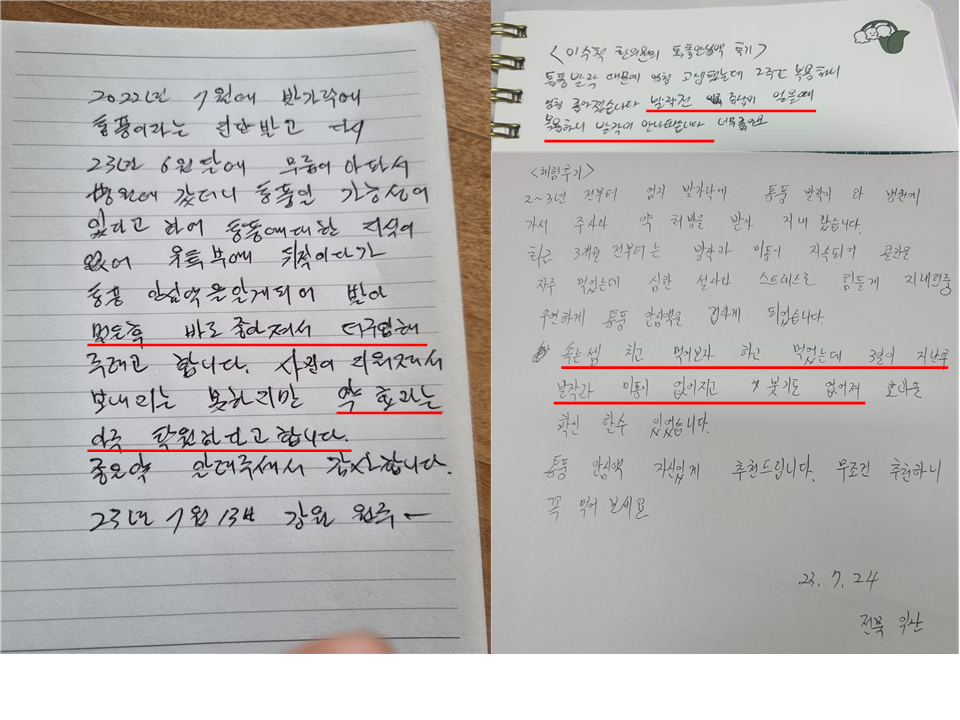 2022년 7월에 발가락에
통풍이라는 진단받고 다시
23년 6월달에 무릎이 아파서
병원에 갔더니 통풍일 가능성이
있다고 하여 통풍에대한 지식이
없어 유튜브에 뒤적이다가
통풍 안심액을알게되어 받아
먹은후 바로 좋아져서 더구입해
두래고 합니다. 사진이
보내리는 못하지만 약 효과는
아주 탁월하다고합니다.
좋은약 알려주셔서 감사합니다.
23년 7월 13日 강원 원주
<이수픽 한의원의 통풍안심액 후기>
통풍발작 때문에 엄청 고생했는데 2주간 복용하니
엄청 좋아졌습니다 발작전 증상이 있을때
복용하니 발작이 안나타납니다 너무좋아요
<체험후기>
2~3년 전부터 엄지 발가락에 통풍 발작이 와 병원에
가서 주사와 약 처방을 받아 지내 왔습니다.
최근 3개월 전부터는 발작과 이통이 지속되어 콜킨을
자주 먹었는데 심한 설사와 스트레스로 힘들게 지내던중
우연하게 통풍 안심액을 접하게 되었습니다.
속는셈 치고 먹어보자 하고 먹었는데 3일이 지난후
발작과 이통이 없어지고 붓기도 없어져 효과를
확인 할수 있었습니다.
통풍 안심액 자신있게 추천드립니다. 무조건 추천하니
꼭 먹어 보세요
23. 7. 24
전북 익산